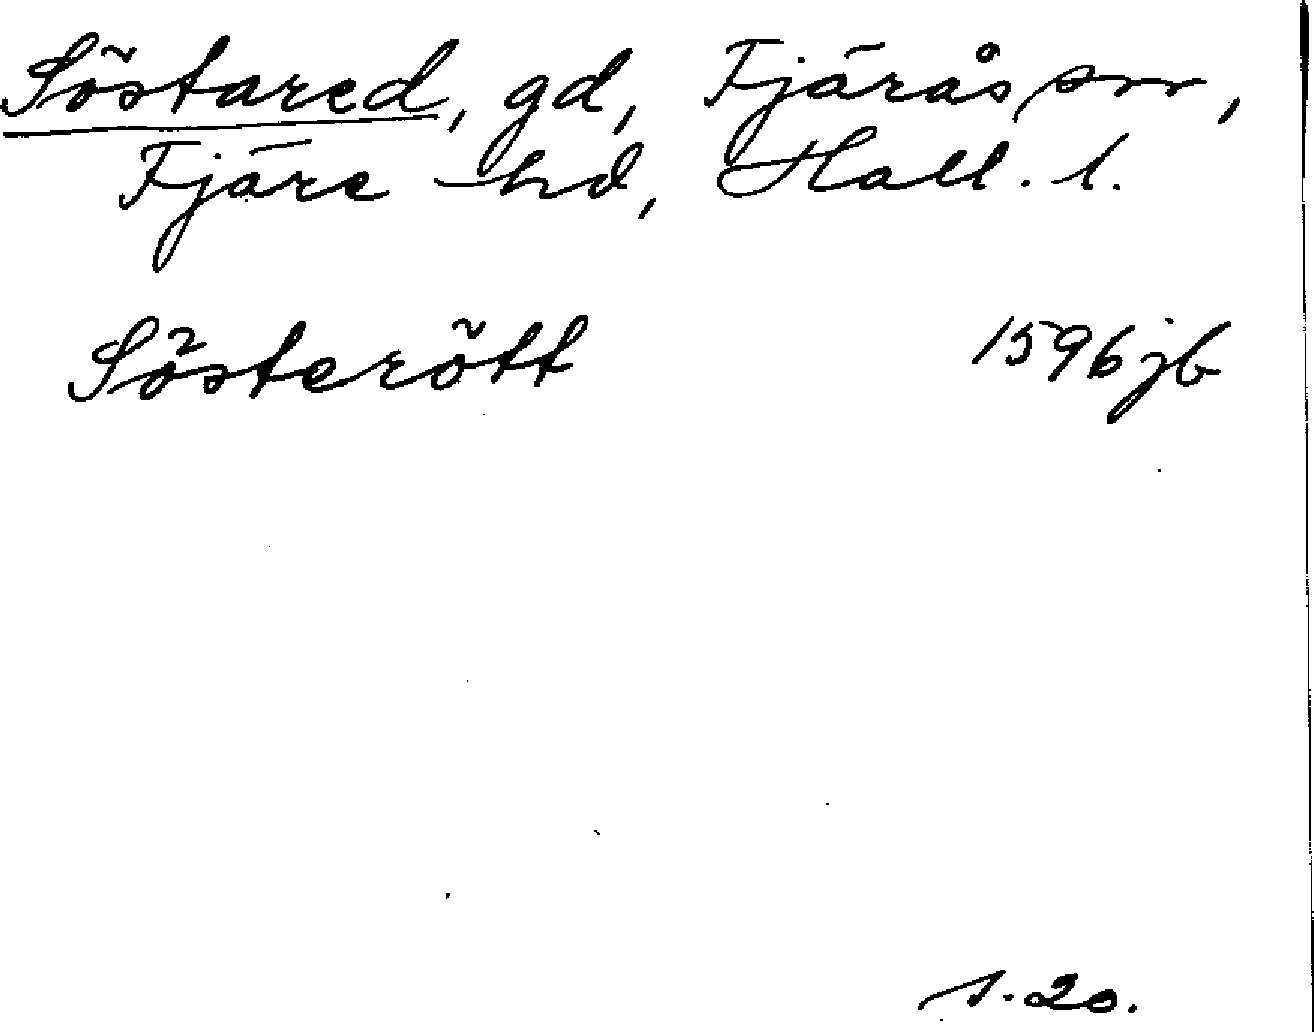 Söstared, gd, Fjärås sn,
Fjäre hd, Hall. l.
Sösterött 1596 jb
s. 20.